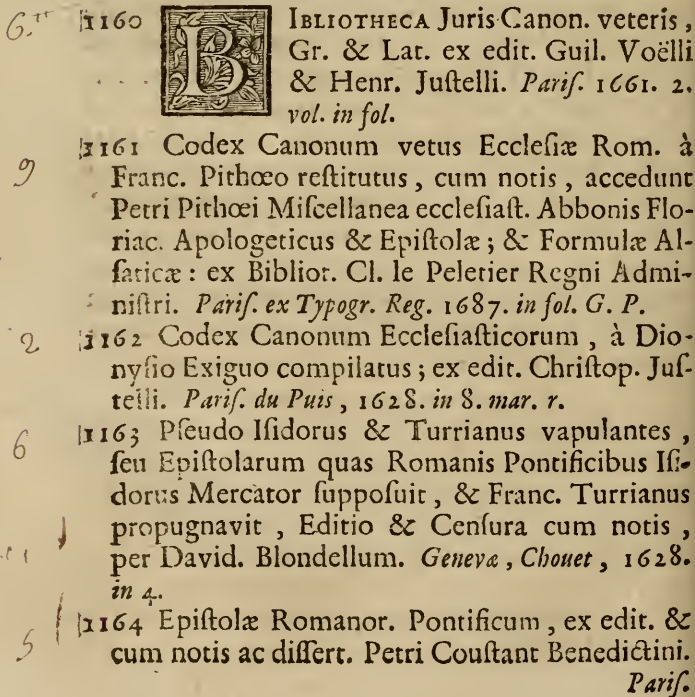 6.tt 1160 BIBLIOTHECA Juris Canon. veteris,
Gr. & Lat. ex edit. Guil. Voëlli
& Henr. Juſtelli. Pariſ. 1661. 2.
vol. in fol.
9 1161 Codex Canonum vetus Eccleſiæ Rom. à
Franc. Pithœo reſtitutus, cum notis, accedunt
Petri Pithœi Miſcellanea eccleſiaſt. Abbonis Flo-
riac. Apologeticus & Epiſtolæ; & Formulæ Al-
ſaticæ: ex Biblior. Cl. le Peletier Regni Admi-
niſtri. Pariſ. ex Typogr. Reg. 1687. in fol. G. P.
2 1162 Codex Canonum Eccleſiaſticorum, à Dio-
nyſio Exiguo compilatus; ex edit. Chriſtop. Juſ-
telli. Pariſ. du Puis, 1628. in 8. mar. r.
6 1163 Pſeudo Iſidorus & Turrianus vapulantes,
ſeu Epiſtolarum quas Romanis Pontificibus Iſi-
dorus Mercator ſuppoſuit, & Franc. Turrianus
propugnavit, Editio & Cenſura cum notis,
per David. Blondellum. Genevæ, Chouet, 1628.
in 4.
5 1164 Epiſtolæ Romanor. Pontificum, ex edit. &
cum notis ac diſſert. Petri Couſtant Benedictini.
Pariſ.